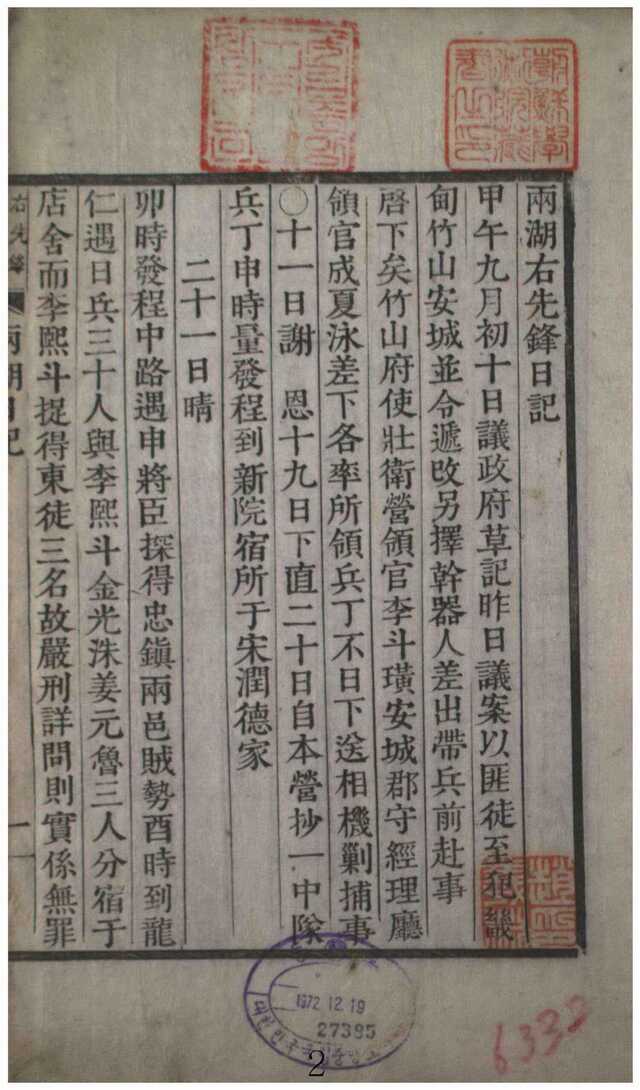 兩湖右先鋒日記
甲午九月初十日議政府草記昨日議案以匪徒至犯畿
甸竹山安城並令遞改另擇幹器人差出帶兵前赴事
啓下矣竹山府使壯衛營領官李斗璜安城郡守經理廳
領官成夏泳差下各率所領兵丁不日下送相機剿捕事
○十一日謝 恩十九日下直二十日自本營抄一中隊
兵丁申時量發程到新院宿所于宋潤德家
二十一日晴
卯時發程中路遇申將臣探得忠鎭兩邑賊勢酉時到龍
仁遇日兵三十人與李熙斗金光洙姜元魯三人分宿于
店舍而李熙斗捉得東徒三名故嚴刑詳問則實係無罪
右先鋒 兩湖日記 一
朝鮮學術院藏書之印
1972.12.19
27395
2
6332